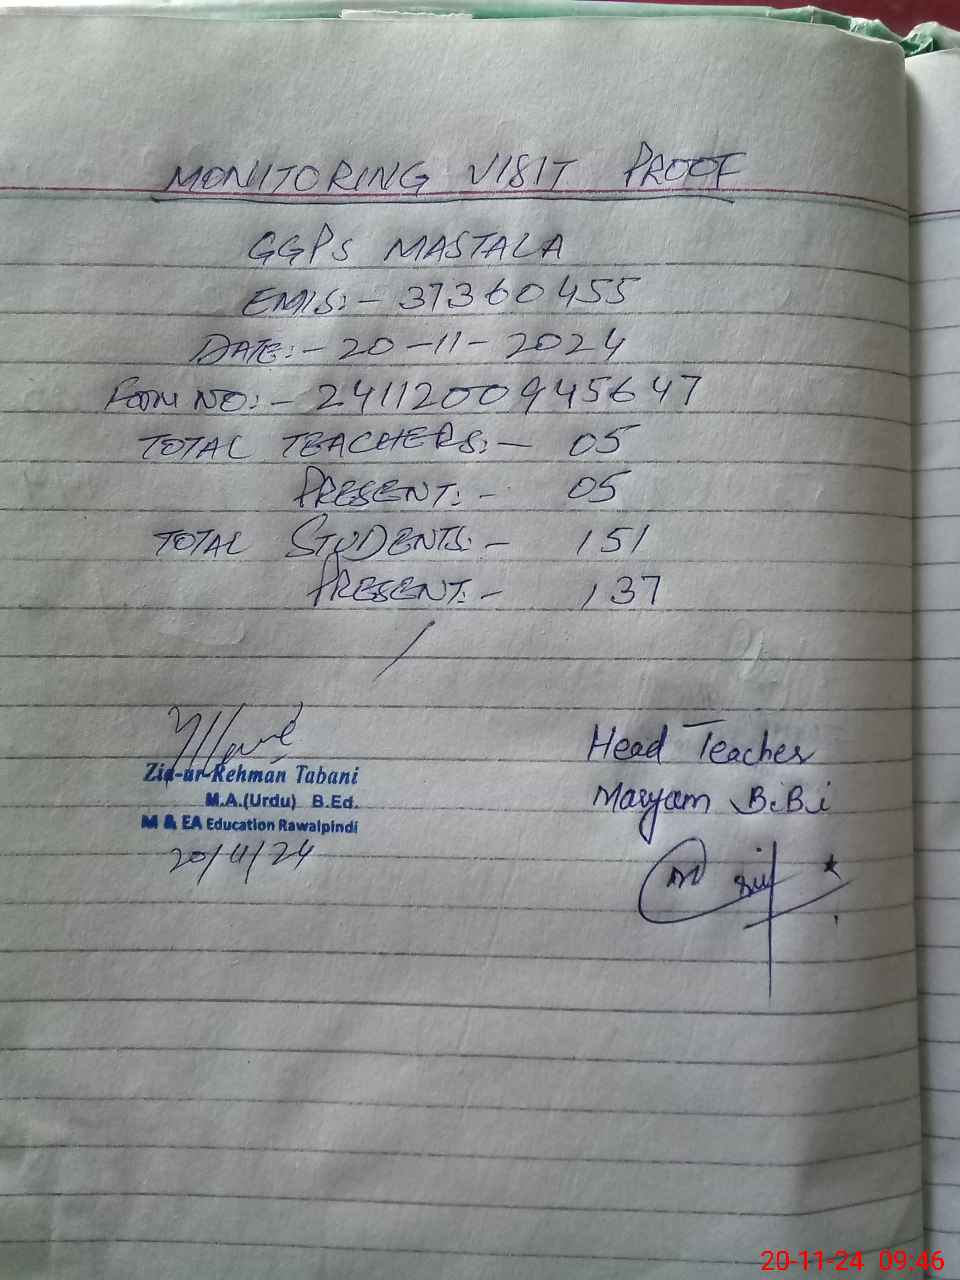 MONITORING VISIT PROOF
GGPS MASTALA
EMIS:- 37360455
DATE:- 20-11-2024
FORM NO:- 2411200945647
TOTAL TEACHERS:- 05
PRESENT:- 05
TOTAL STUDENTS:- 151
PRESENT:- 137
Zia-ur-Rehman Tabani
M.A.(Urdu) B.Ed.
M & EA Education Rawalpindi
20/11/24
Head Teacher
Maryam BiBi
20-11-24 09:46